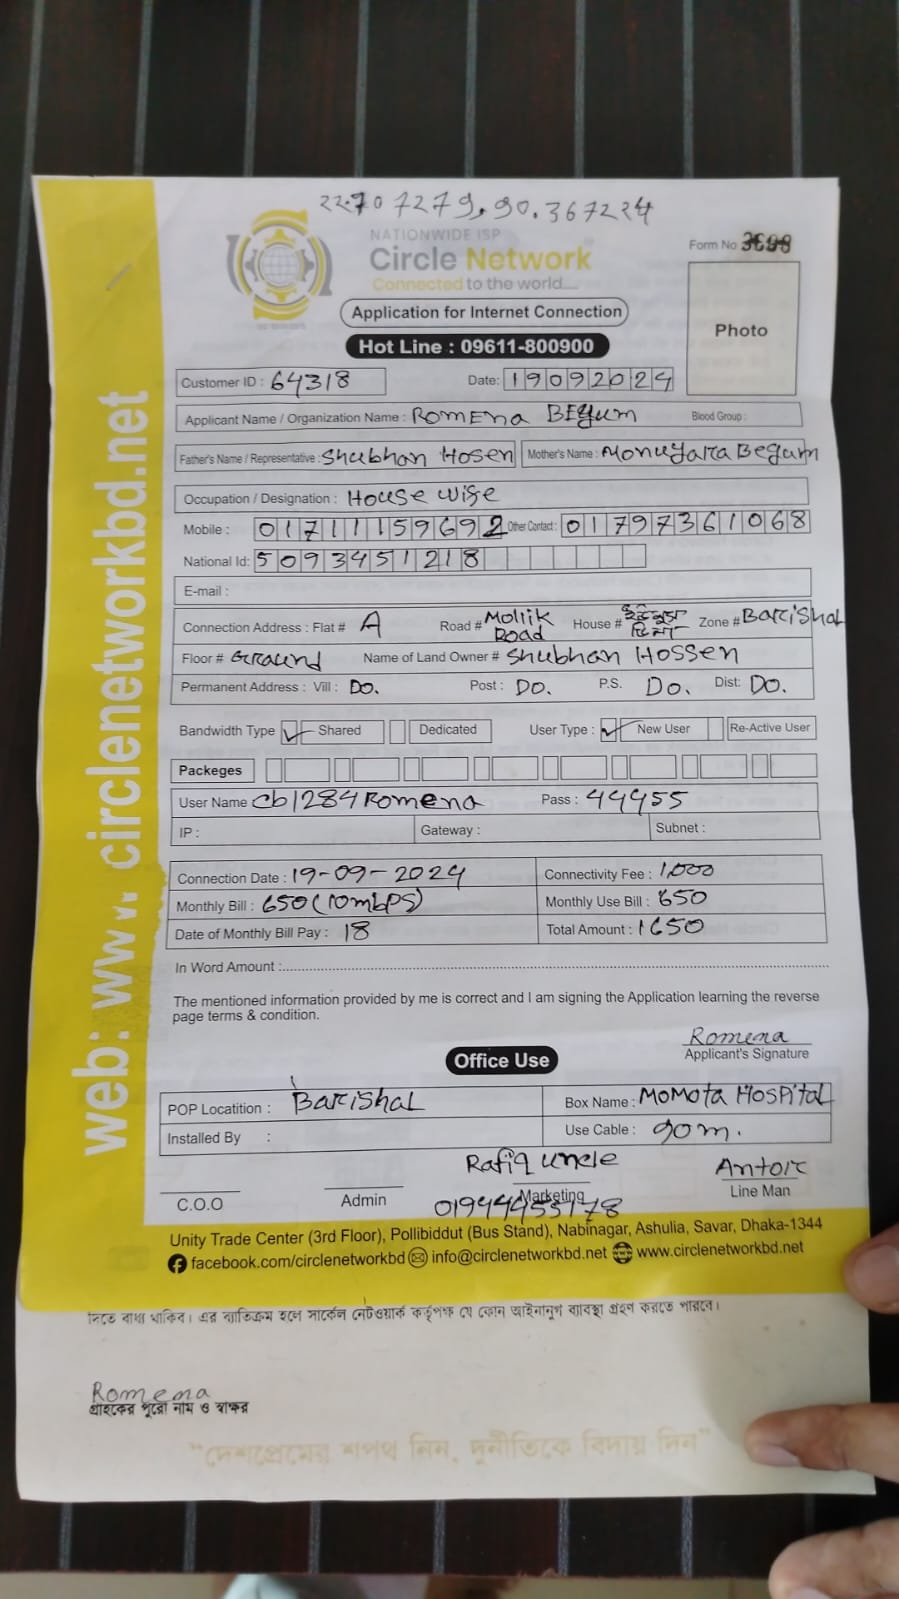 22.707279, 90.367224
NATIONWIDE ISP
Circle Network
Connected to the world....
Form No
Photo
Application for Internet Connection
Hot Line : 09611-800900
Customer ID : 64318 Date: 19092024
Applicant Name / Organization Name : Romena Begum Blood Group :
Father's Name / Representative : Shubhan Hosen Mother's Name : Monuyara Begum
Occupation / Designation : House wife
Mobile : 01711159692 Other Contact : 01797361068
National Id: 5093451218
E-mail :
Connection Address : Flat # A Road # Mollik Road House # Zone # Barishal
Floor # Graund Name of Land Owner # Shubhan Hossen
Permanent Address : Vill : Do. Post : Do. P.S. Do. Dist: Do.
Bandwidth Type ✓ Shared Dedicated User Type : ✓ New User Re-Active User
Packeges
User Name cb1284Romena Pass : 44455
IP : Gateway : Subnet :
Connection Date : 19-09-2024 Connectivity Fee : 1,000
Monthly Bill : 650 (10mbps) Monthly Use Bill : 650
Date of Monthly Bill Pay : 18 Total Amount : 1650
In Word Amount :
The mentioned information provided by me is correct and I am signing the Application learning the reverse
page terms & condition.
Romena
Applicant's Signature
Office Use
POP Locatition : Barishal Box Name : Momota Hospital
Installed By : Use Cable : 90m.
Rafiq uncle Antor
C.O.O Admin Marketing Line Man
01944455178
Unity Trade Center (3rd Floor), Pollibiddut (Bus Stand), Nabinagar, Ashulia, Savar, Dhaka-1344
facebook.com/circlenetworkbd info@circlenetworkbd.net www.circlenetworkbd.net
web: www. circlenetworkbd.net
দিতে বাধ্য থাকিব। এর ব্যতিক্রম হলে সার্কেল নেটওয়ার্ক কর্তৃপক্ষ যে কোন আইনানুগ ব্যবস্থা গ্রহণ করতে পারবে।
Romena
গ্রাহকের পুরো নাম ও স্বাক্ষর
"দেশপ্রেমের শপথ নিন, দুর্নীতিকে বিদায় দিন"